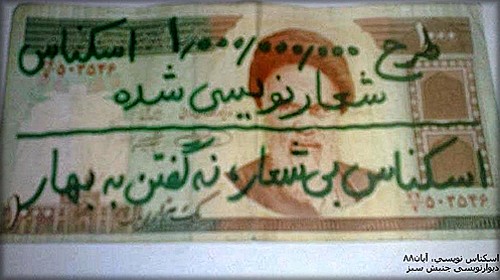 طرح ۱,۰۰۰/۰۰۰/۰۰۰ اسکناس
شعارنویسی شده
اسکناس بی شعار، نه گفتن به بهار
۵۰۳۵۳۶
۵۰۳۵۳۶
اسکناس نویسی، آبان۸۸
دیوارنویسی جنبش سبز